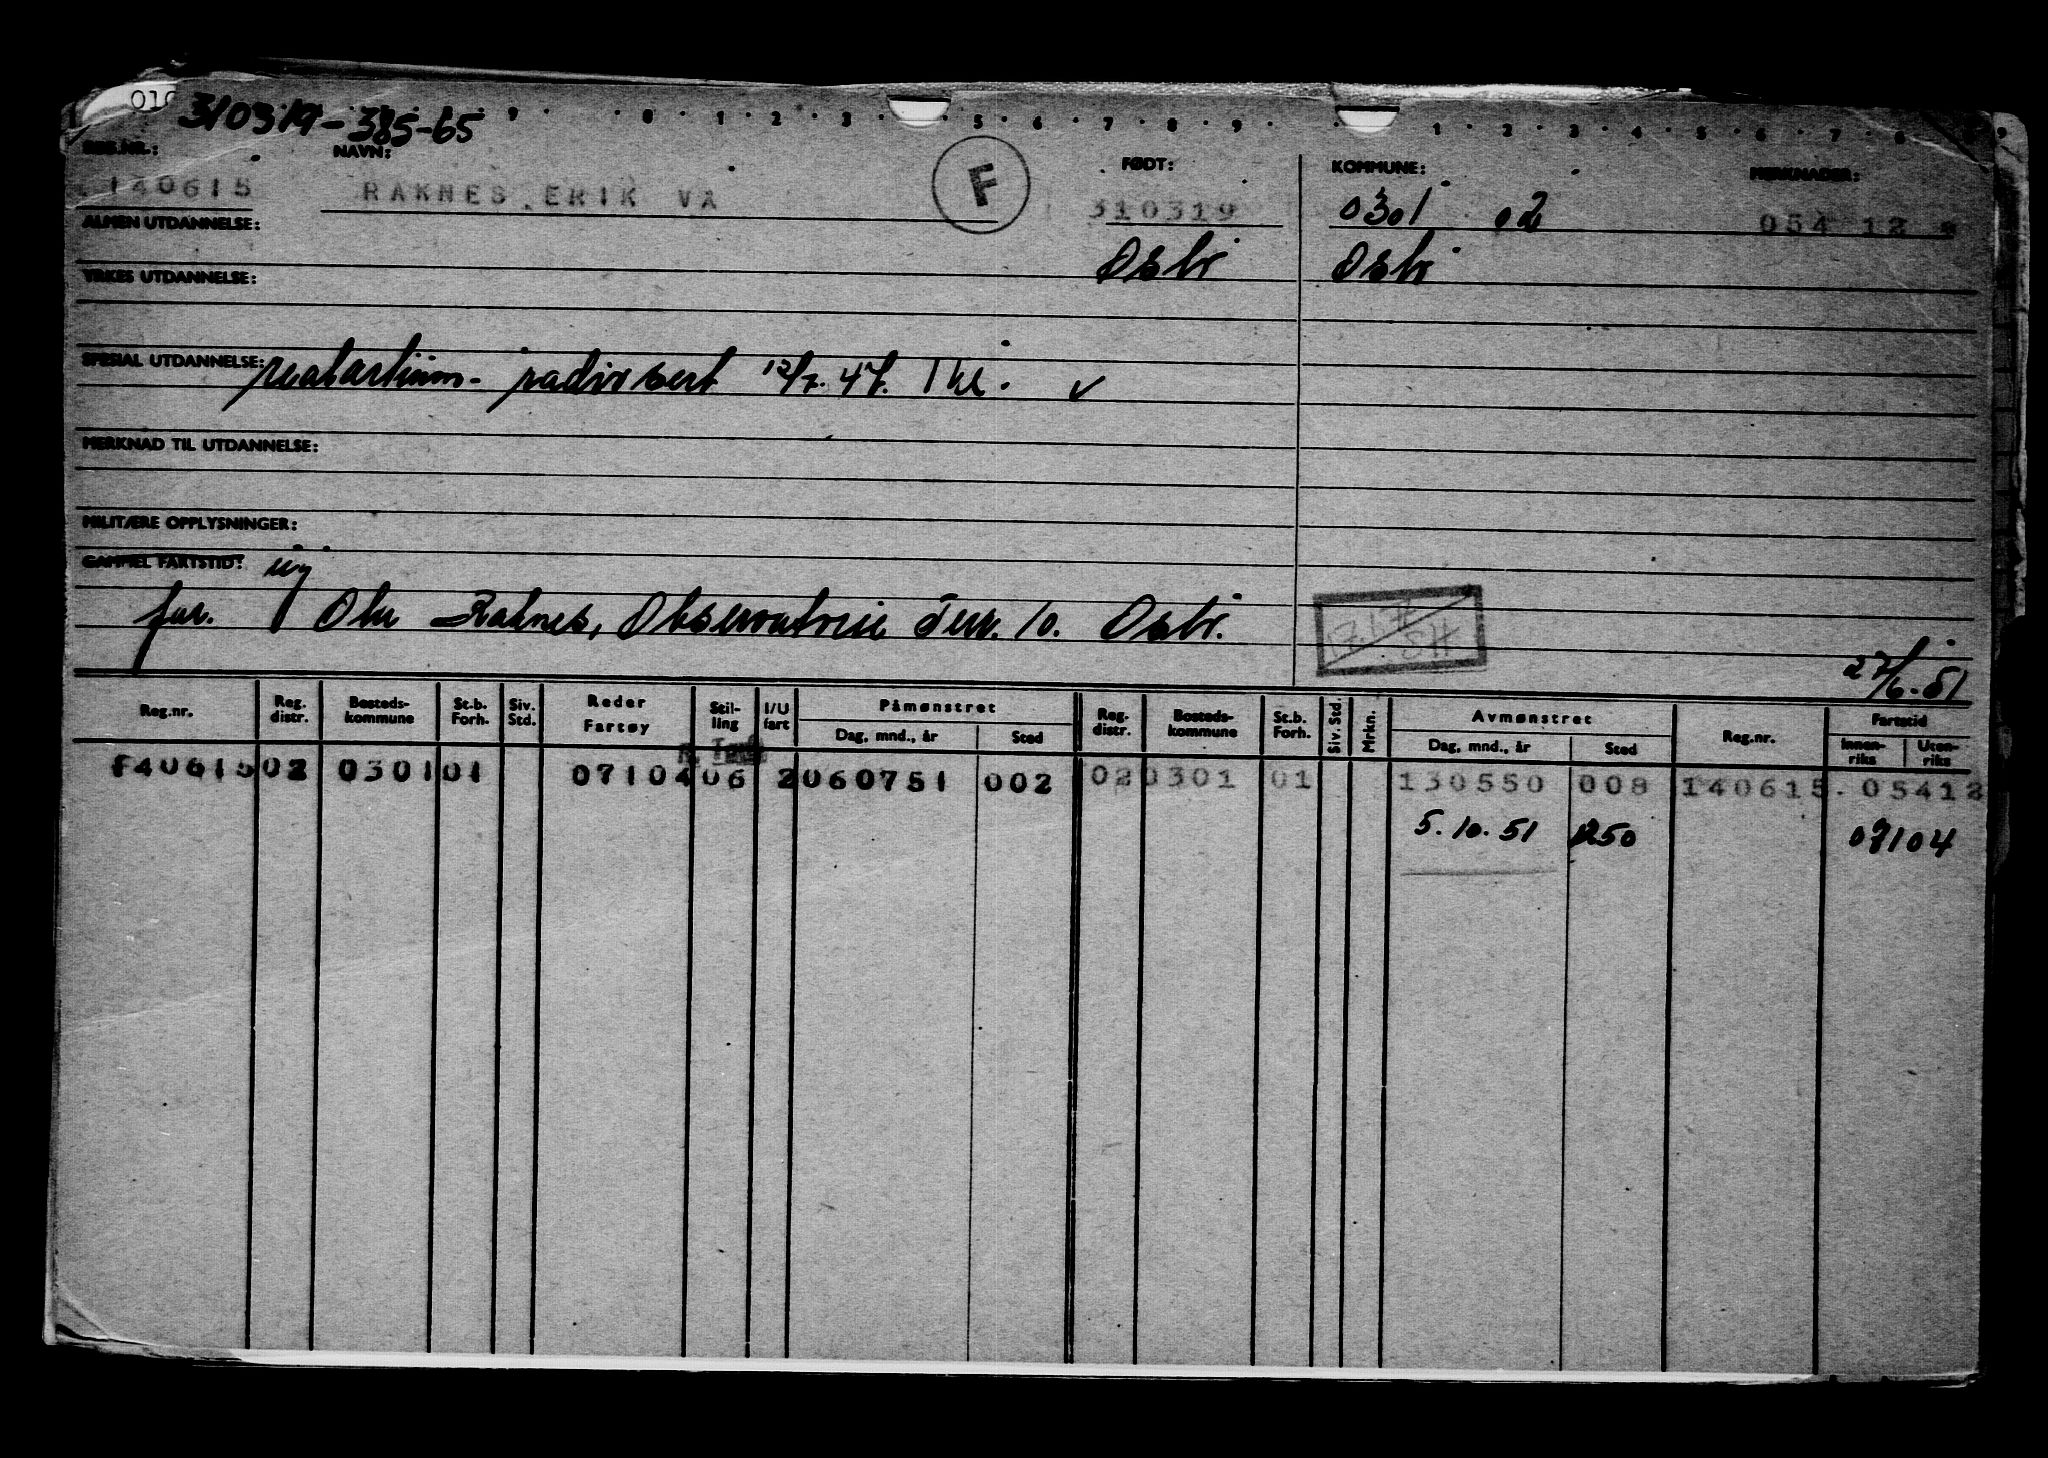 010
310319-385-65
7 8 . 1 . 2 . 3 . 5 . 6 . 7 . 8 . 9 . 1 . 2 . 3 . 4 . 5 . 6 . 7 . 8 9
REG.NR.: NAVN: F FØDT: KOMMUNE: MERKNADER:
140615 RAKNES, ERIK VA 310319 0301 02 054 12
ALMEN UTDANNELSE: Oslo Oslo
YRKES UTDANNELSE:
SPESIAL UTDANNELSE: realartium - radiosert 12/7. 47. 1 kl. ✓
MERKNAD TIL UTDANNELSE:
MILITÆRE OPPLYSNINGER:
GAMMEL FARTSTID: ug
far. Olav Raknes, Observatorie Terr. 10. Oslo.
27/6.51
Reg.nr. Reg. distr. Bosteds-kommune St.b. Forh. Siv. Std. Reder Fartøy Stil-ling I/U fart Påmønstret Dag, mnd., år Sted Reg. distr. Bosteds-kommune St.b. Forh. Siv. Std. Mrkn. Avmønstret Dag, mnd., år Sted Reg.nr. Fartstid Innen-riks Uten-riks
140615 02 0301 01 07104 06 2 060751 002 02 0301 01 130550 008 140615 05412
5.10.51 250 07104